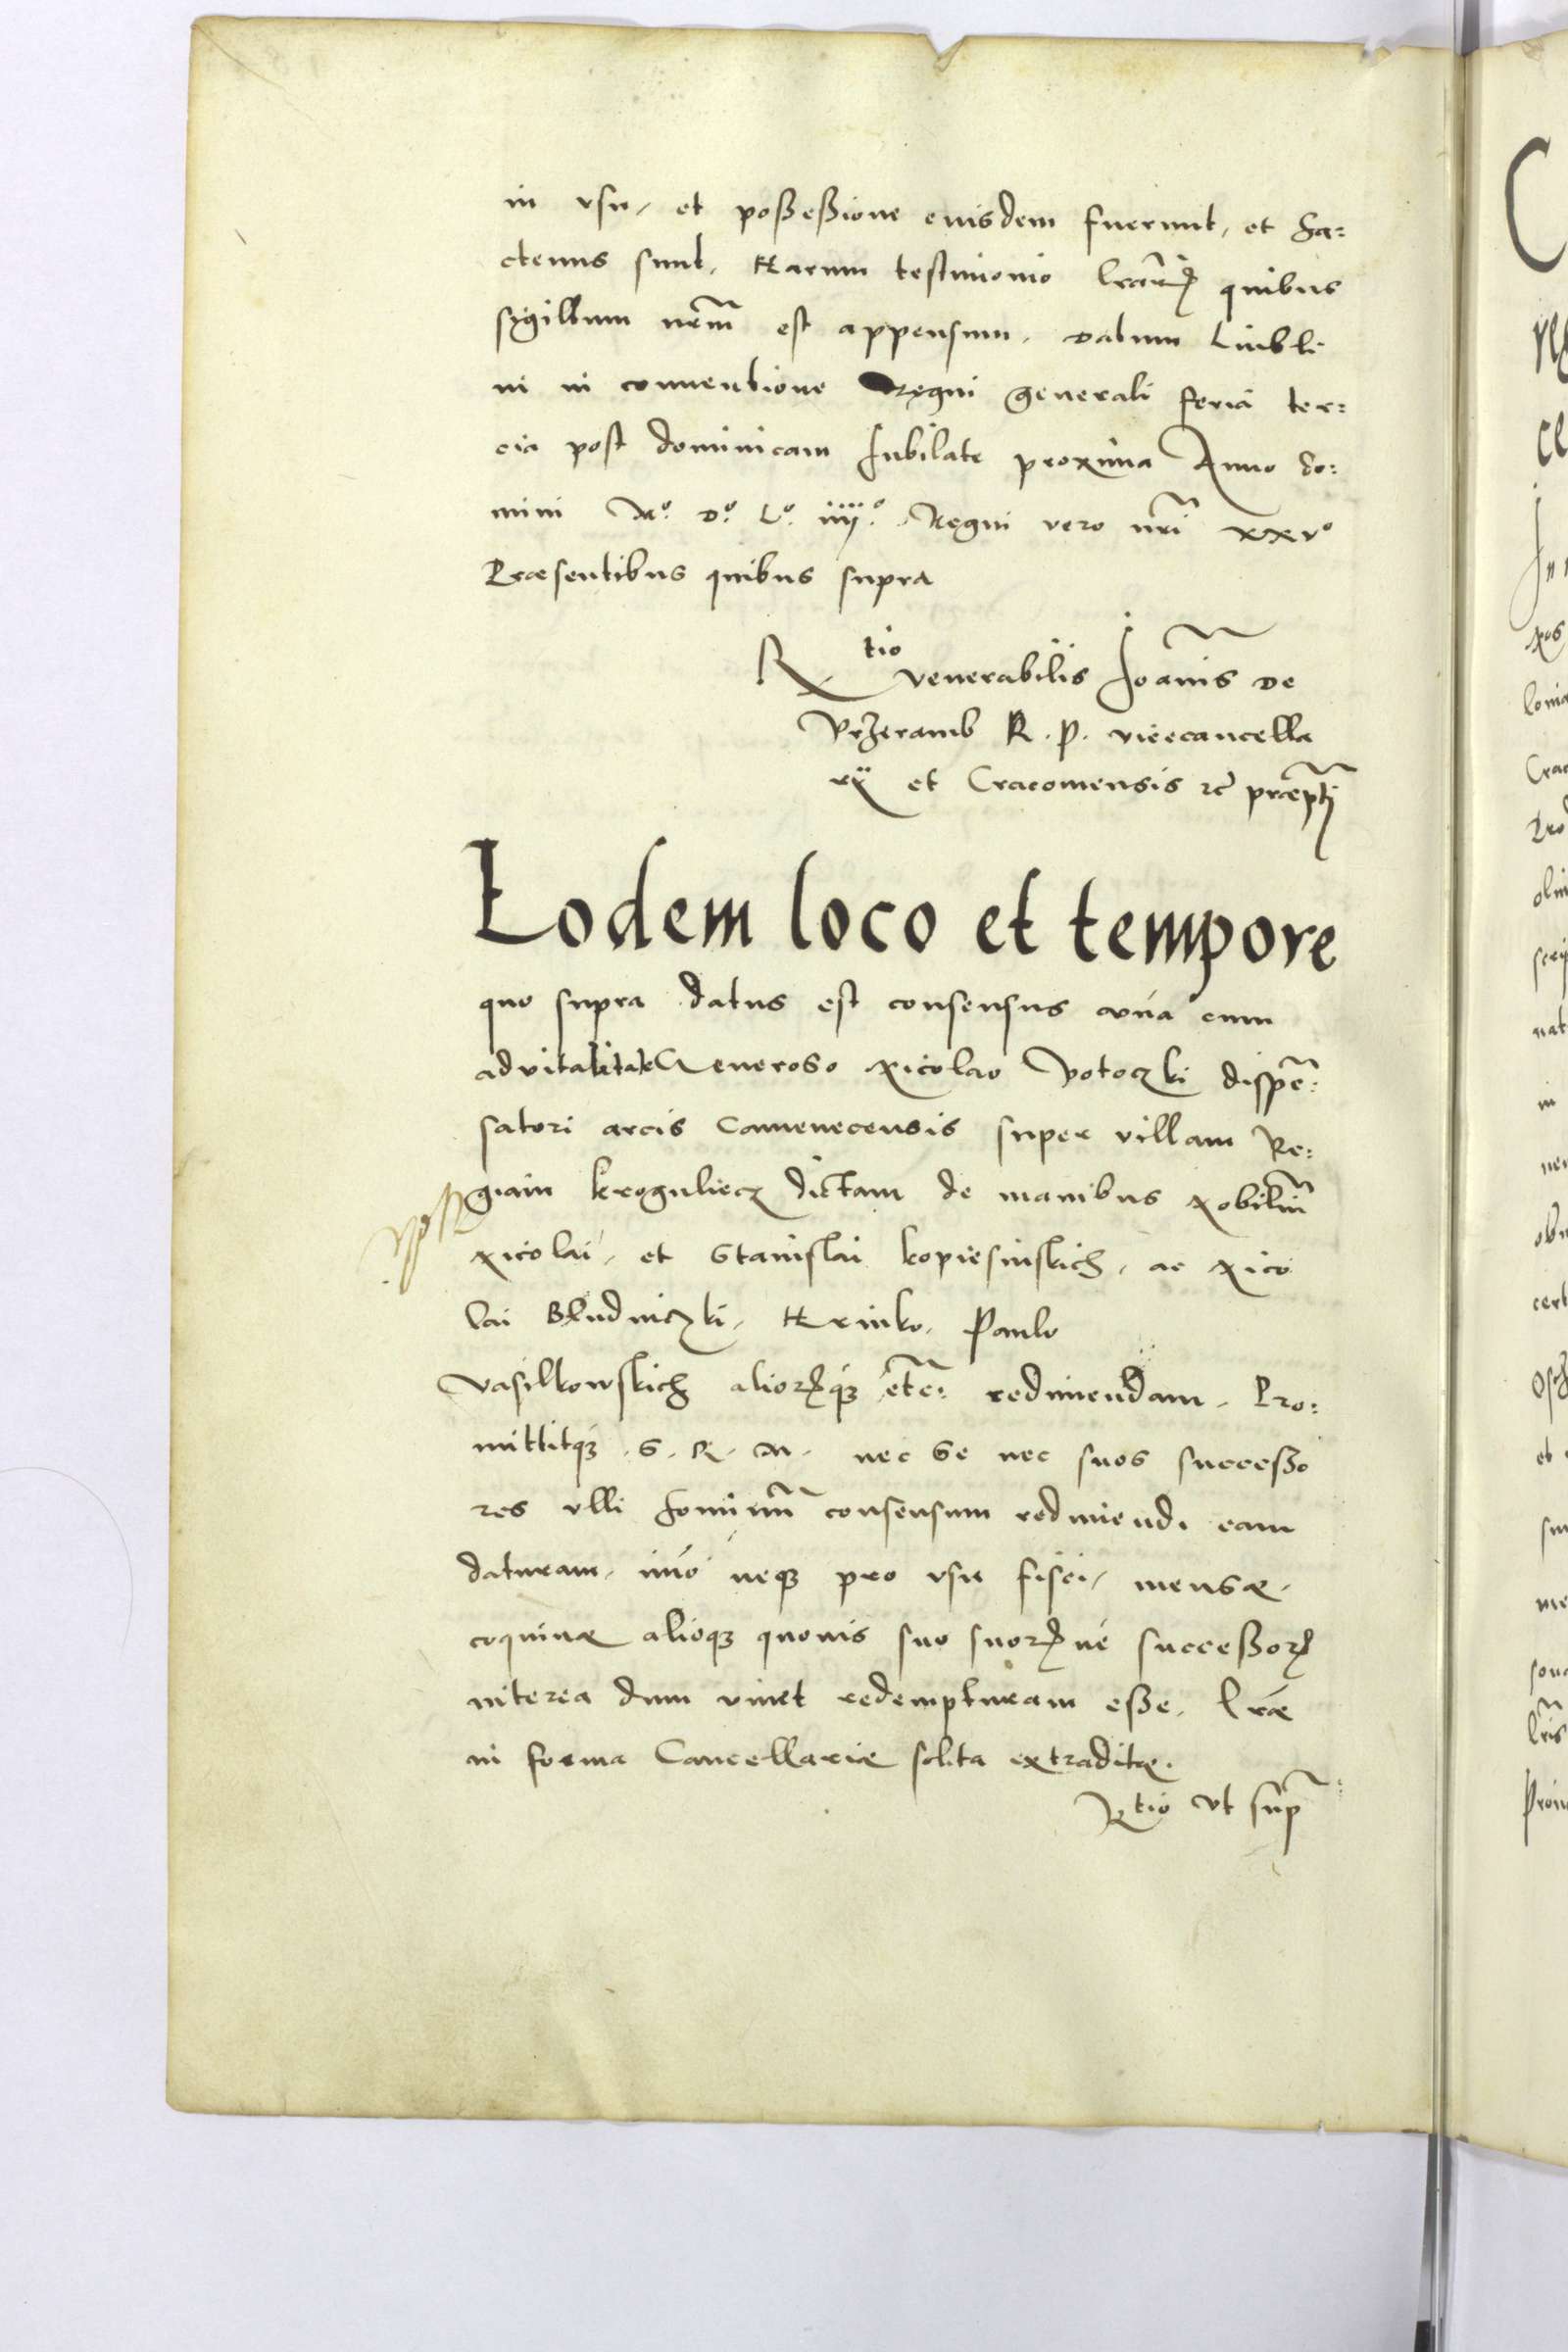 in vsu, et possessione euisdem fuerunt, et ha:
ctenus sunt, Harum testimonio lrarũ quibus
sygillum nrm̃ est appensum. Datum Lubli
ni in conuentione Regni generali feria ter:
cia post dominicam Jubilate proxima Anno do:
mini Mº. Dº. Lº. iiijº. Regni vero nri̇̃ xxvº
Præsentibus quibus supra
Rtio venerabilis Joañis de
Przeramb R. P. vicecancella
rÿ et Cracouiensis zc̃ præptj̃
Eodem loco et tempore
quo supra datus est consensus vna cum
aduitalitate Generoso Nicolao Potoczki dispẽ:
satori arcis Camenecensis super villam Re:
giam kroguliecz dictam de manibus Nobiliũ
Nicolai, et Stanislai kopiesinskich, ac Nico
lai Bludniczki, Hrinko, Paulo
Vasilkowskich aliorũq₃ etc̃: redimendam. Pro:
mittitq₃ S. R. M. nec se nec suos successo
res vlli hominũ consensum redimendi eam
daturam, imo neq₃ pro vsu fisci, mensæ,
coquinæ alioq₃ quouis suo suorũue successorũ
interea dum viuet redempturam esse. Lræ
in forma Cancellariæ solita extraditæ.
Rtio vt sup̃